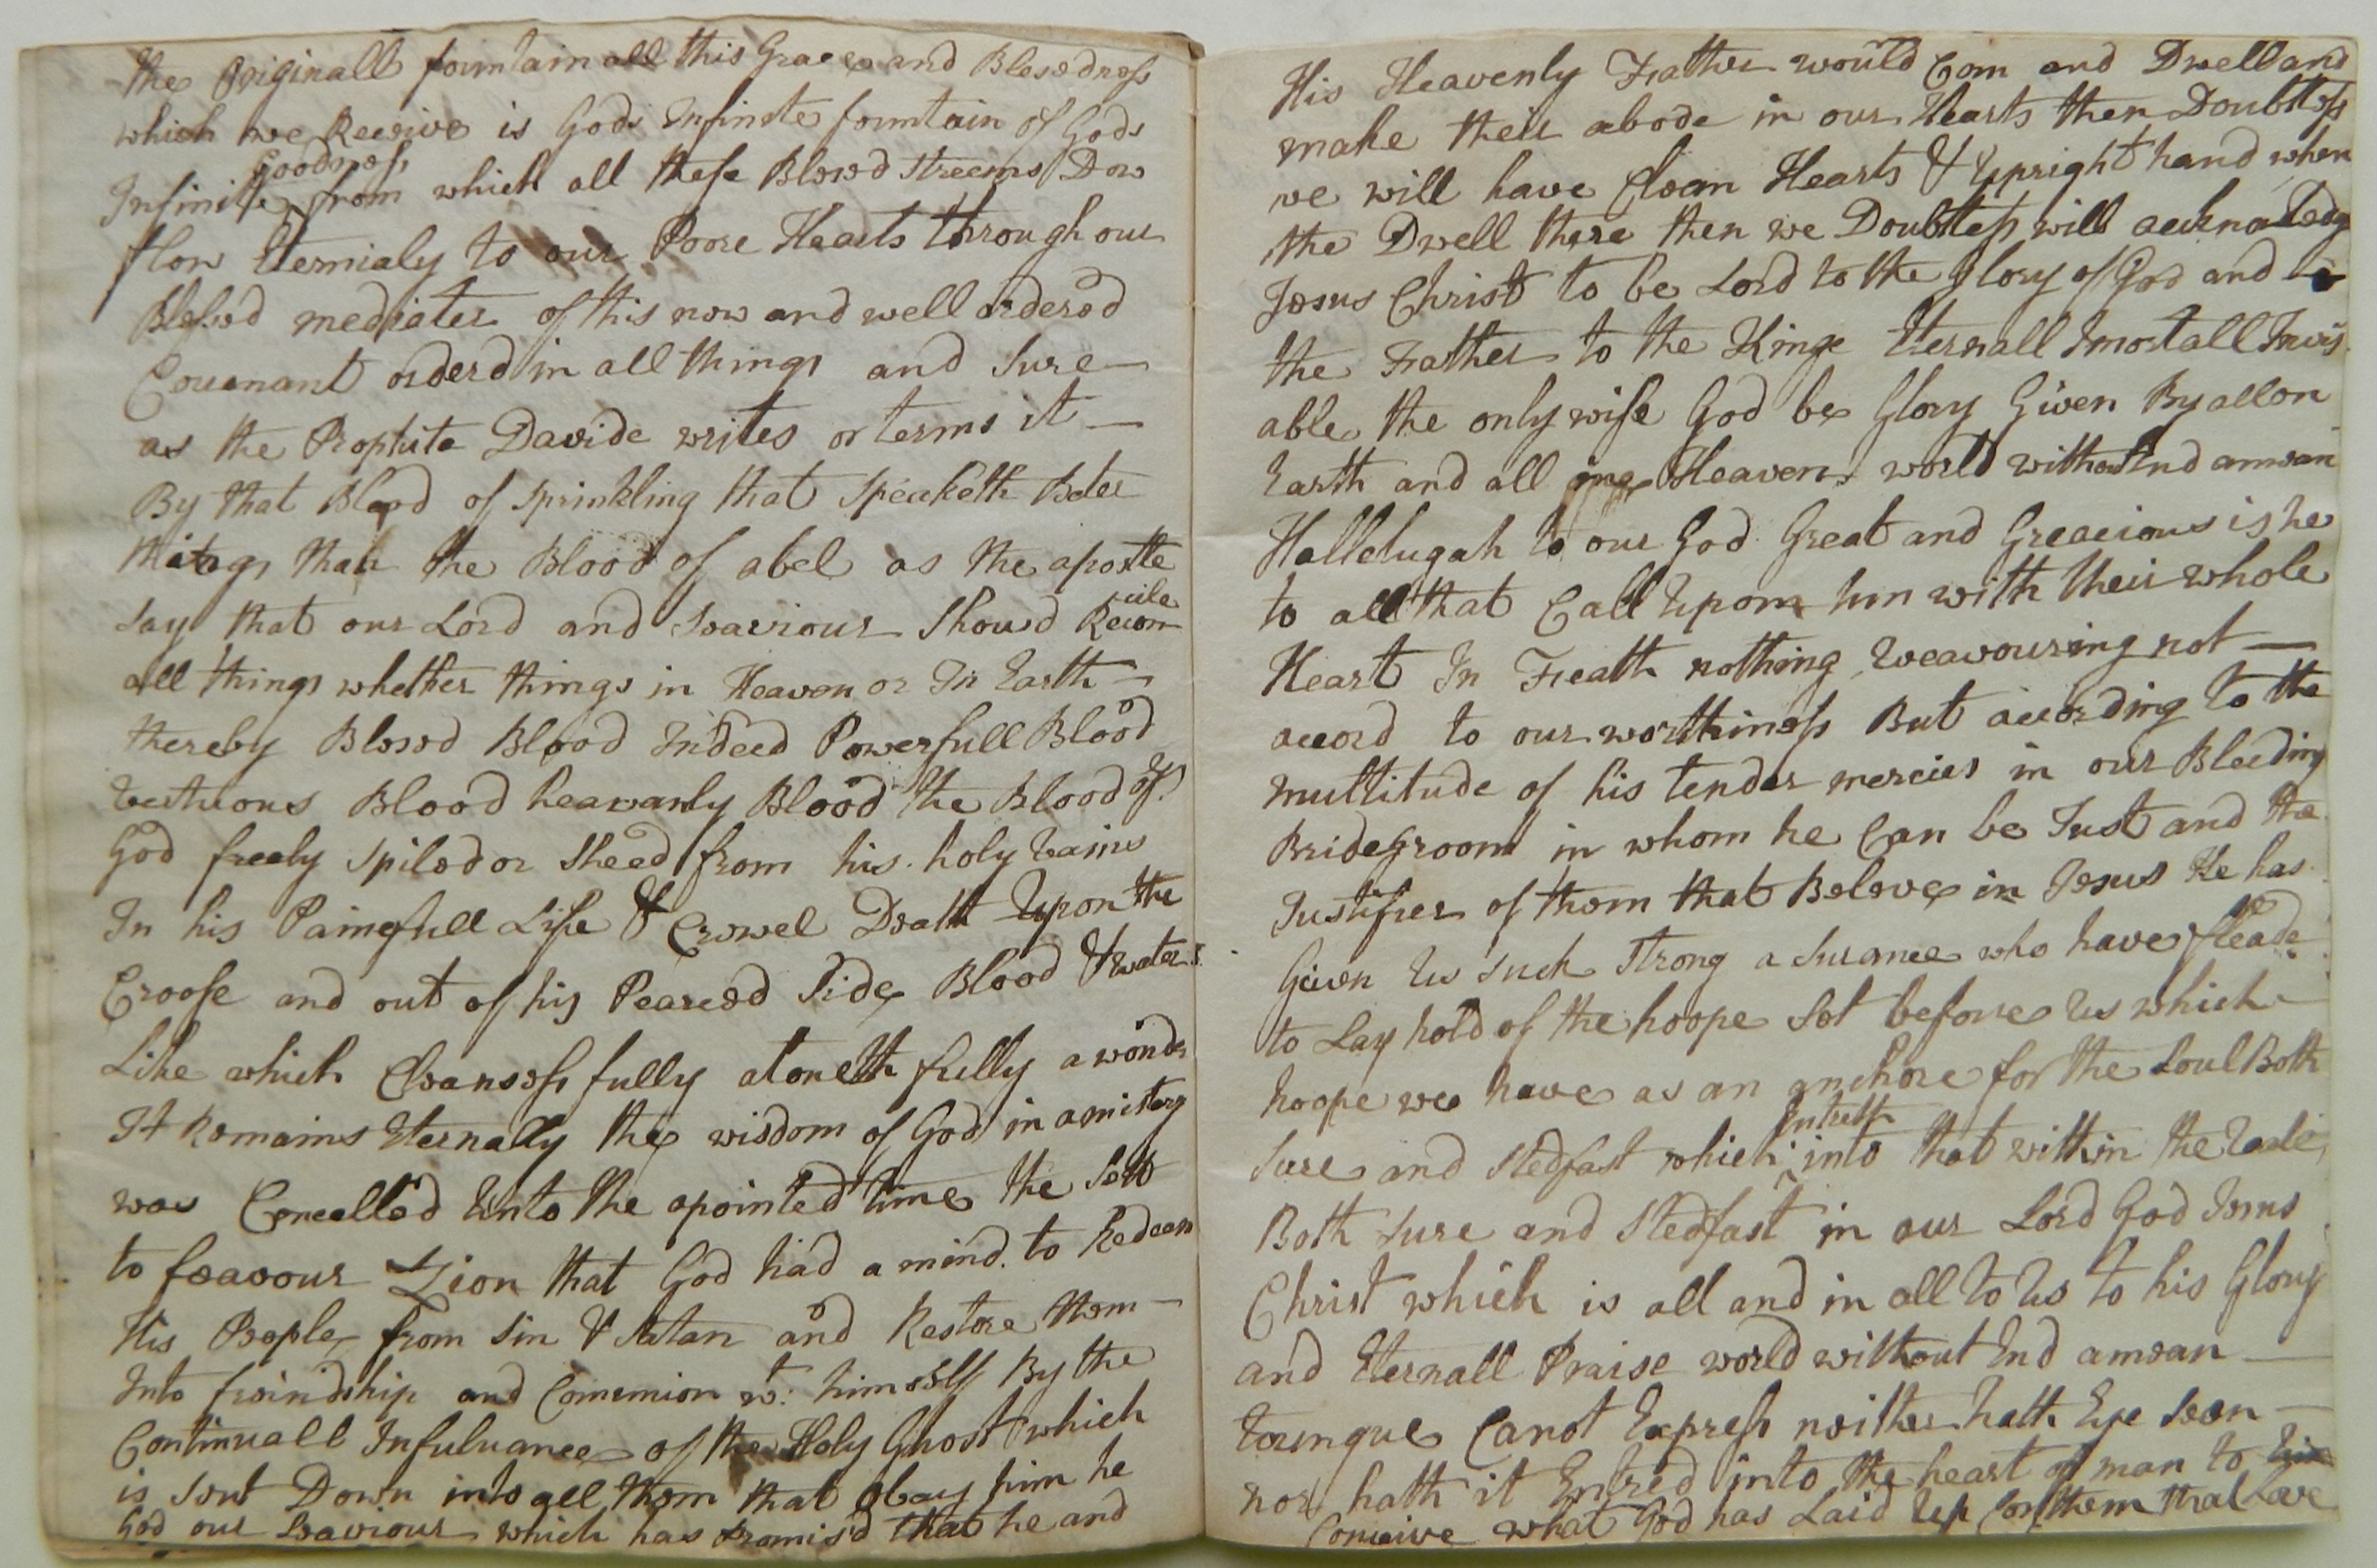 the Originall fountain all this Grace and Blesedness
which we Receive is Gods Infinite fountain of Gods
Goodness
Infinite from which all these Blesed streems Dow
flow Eternialy to our Poore Hearts through our
Blessed mediater of this now and well ordered
Covenant orderd in all things and sure —
as the Prophite Davide writes or terms it —
By that Blood of sprinkling that speaketh Beter
things than the Blood of abel as the apostle
say that our Lord and Seaviour Should Recon-cile
all things whether things in Heaven or In Earth —
thereby Blesed Blood Indeed Powerfull Blood
Vertuous Blood heavanly Blood the Blood of
God freely spiled or sheed from his holy Vains
In his Painefull Life & Crowel Death Upon the
Crosse and out of his Pearced side Blood & water
Like which Cleansess fully atoneth fully a wonder
It Remains Eternally the wisdom of God in a mistery
was Concelled Unto the apointed time the Sett
to feavour Zion that God had a mind to Redeem
His People from sin & Satan and Restore them —
Into freindship and Comunion wt: himself By the
Continuall Infuluance of the Holy Ghost which
is sent Down into all them that obay him he
God our Seaviour which has promisd that he and
His Heavenly Father would Com and Dwell and
make their abode in our Hearts then Doubtless
we will have Clean Hearts & Upright hand when
the Dwell there then we Doubtless will acknowledg
Jesus Christ to be Lord to the glory of God and
the Father to the Kinge Eternall Imortall Invis
able the only wise God be Glory Given By all on
Earth and all ing Heaven world without End amean
Hallelugah to our God Great and Greacious is he
to all that Call Upon him with their whole
Heart In Feath nothing weavouring not —
accord to our worthiness But according to the
multitude of his tender mercies in our Bleeding
Bridegroom in whom he Can be Just and the
Justifier of them that Beleve in Jesus He has
Given Us such strong a surance who have fleade
to Lay hold of the hoope set before Us which —
hoope we have as an anchore for the soul Both
Intreth
sure and stedfast which into that within the Vaile
Both sure and stedfast in our Lord God Jesus
Christ which is all and in all to Us to his Glory
and Eternall Praise world without End amean —
toungue Canot Express neither hath Eye seen —
nor hath it Entred into the heart of man to
Conceive what God has Laid Up for them that Love